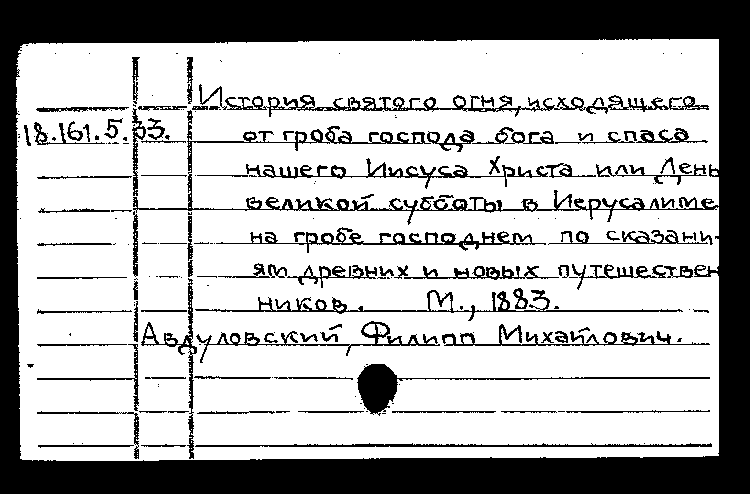 История святого огня, исходящего
18.161.5.33. от гроба господа бога и спаса
нашего Иисуса Христа или День
великой субботы в Иерусалиме
на гробе господнем по сказани-
ям древних и новых путешествен
ников. М., 1883.
Авдуловский, Филипп Михайлович.